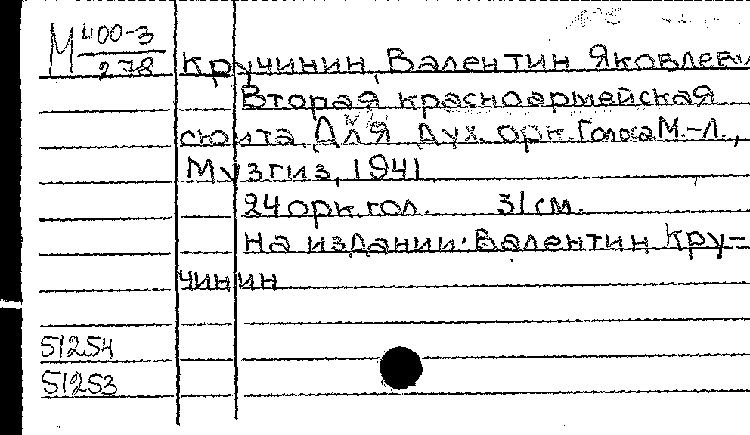 М 400-3
278
Кручинин, Валентин Яковлеви
Вторая красноармейская
сюита Для дух. орк. Голоса М.-Л.,
Музгиз, 1941
24 орк. гол. 31 см.
На издании: Валентин Кру-
чинин
51254
51253